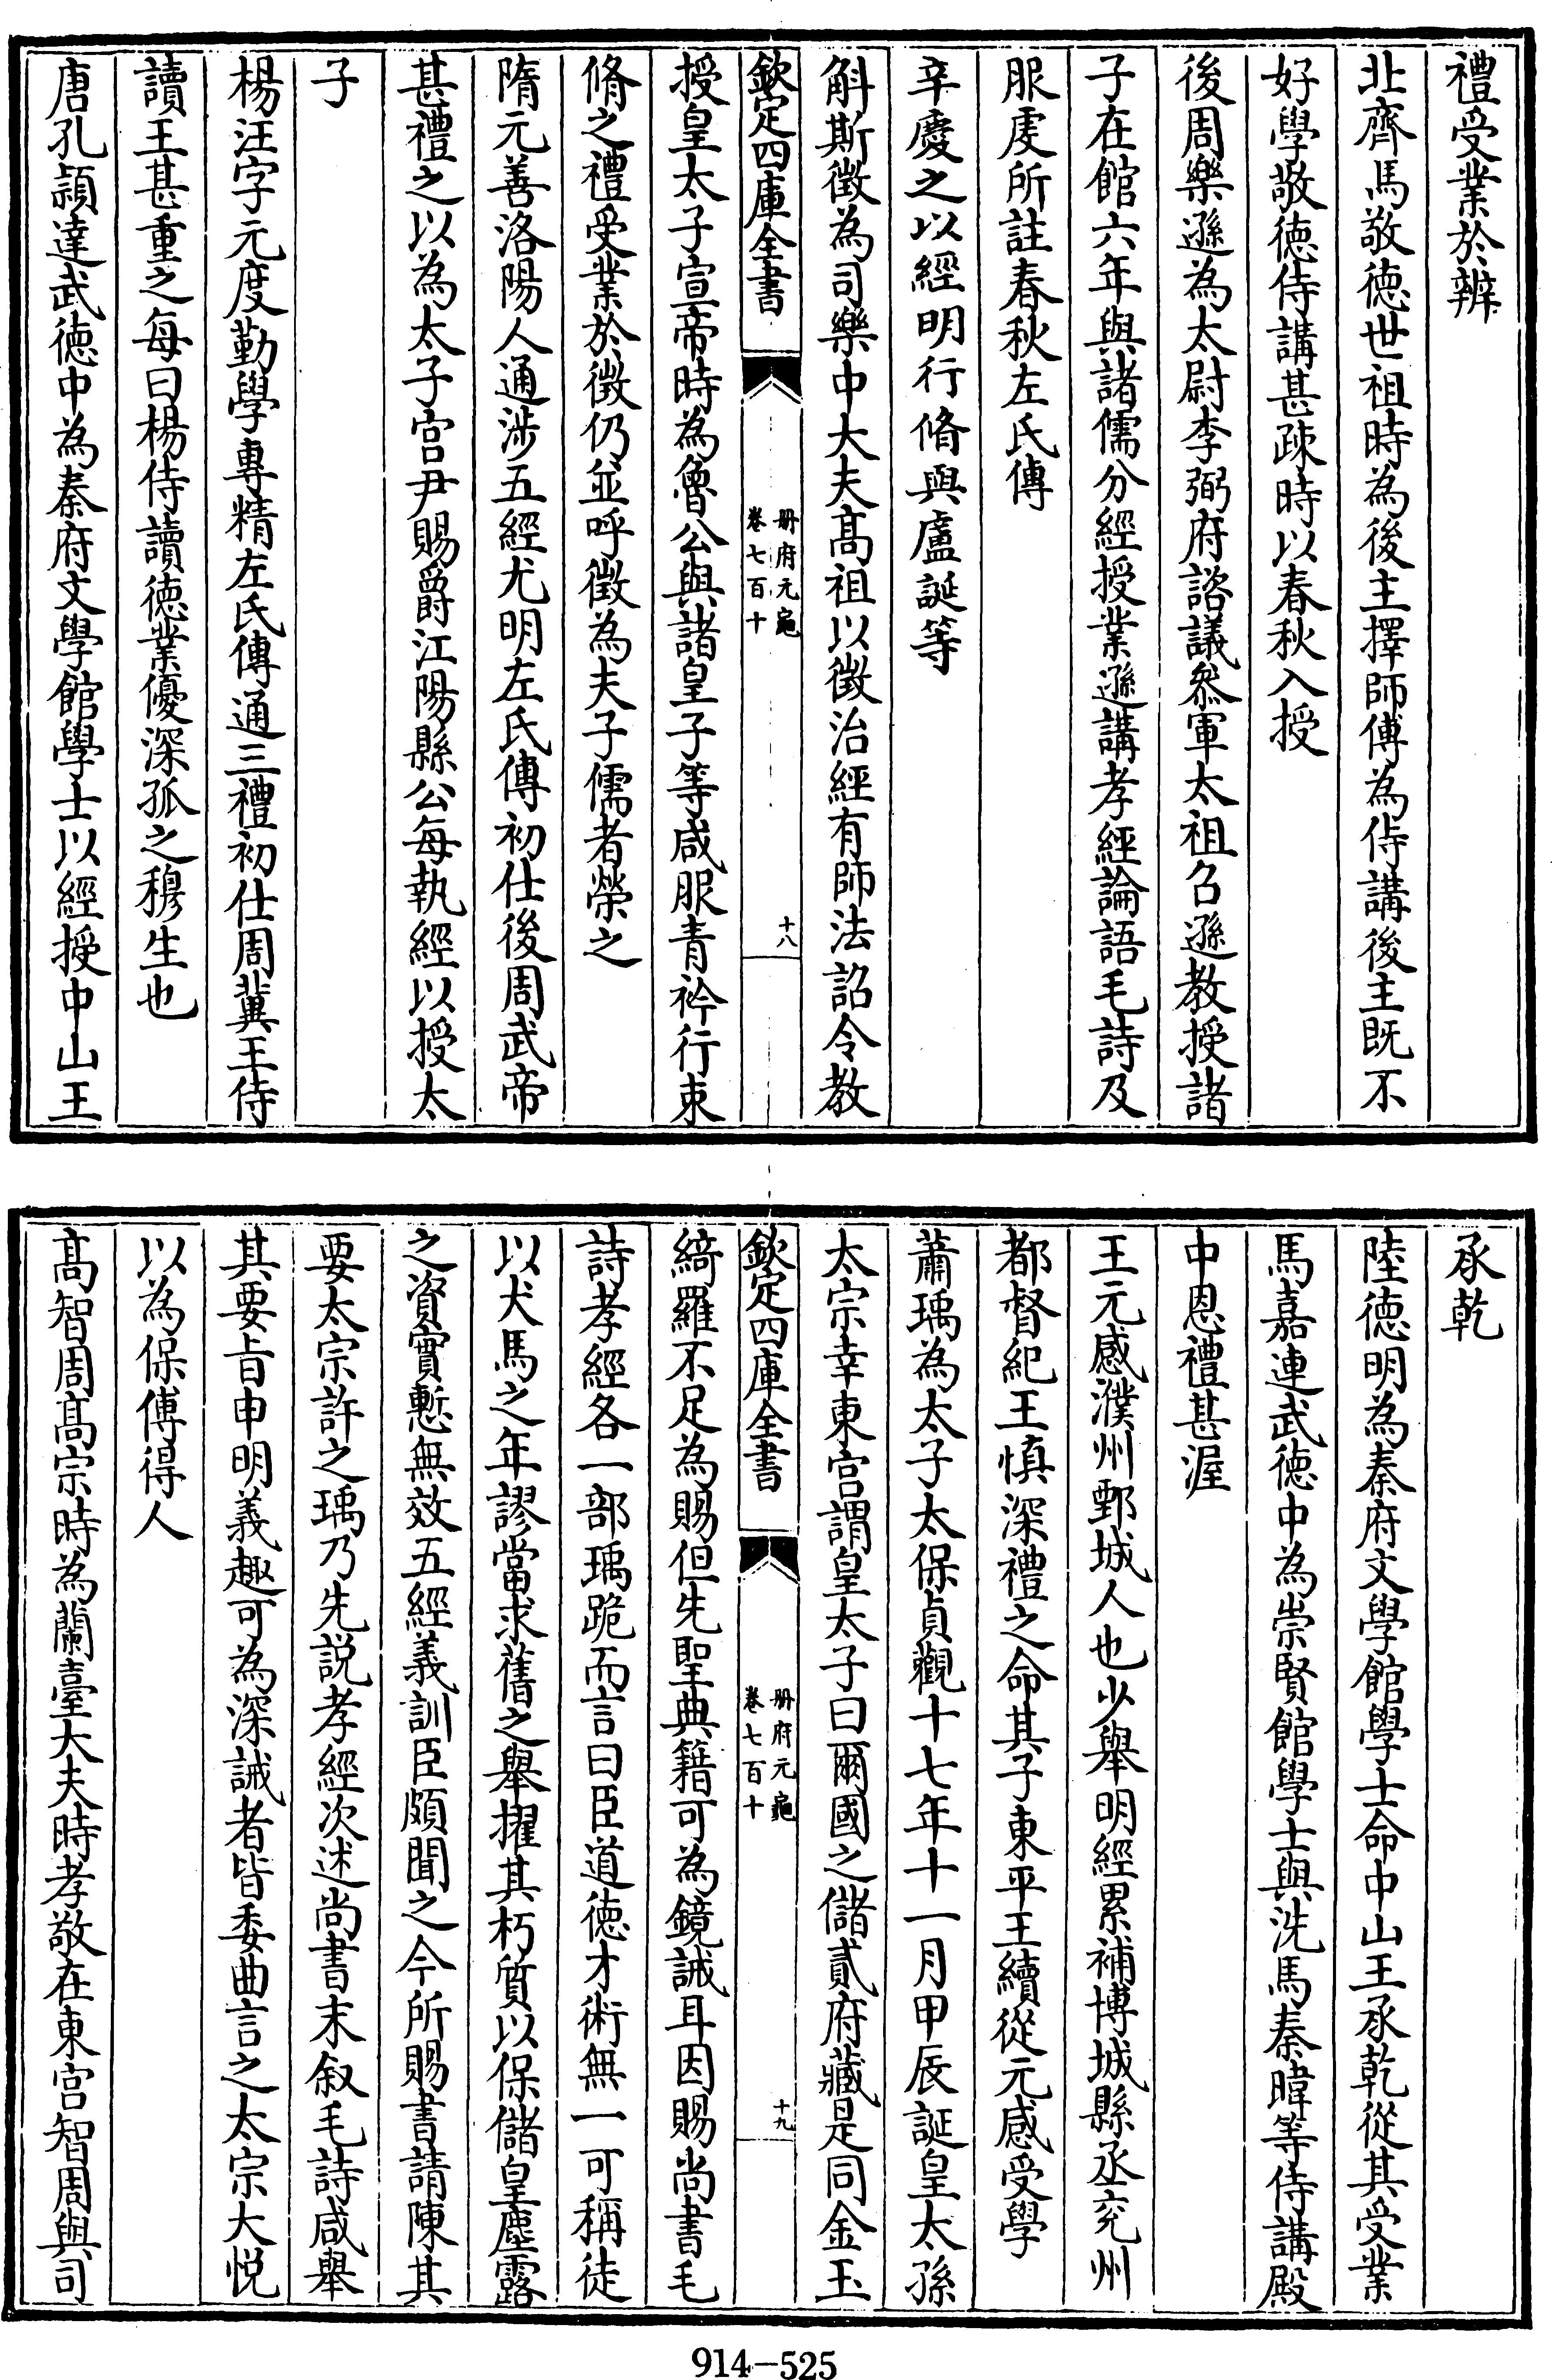 禮受業於辨
北齊馬敬徳世祖時為後主擇師傅為侍講後主既不
好學敬徳侍講甚疎時以春秋入授
後周樂遜為太尉李弼府諮議叅軍太祖召遜教授諸
子在館六年與諸儒分經授業遜講孝經論語毛詩及
服虔所註春秋左氏傳
辛慶之以經明行脩與盧誕等
斛斯徵為司樂中大夫髙祖以徵治經有師法詔令教
欽定四庫全書
册府元龜
卷七百十
十八
授皇太子宣帝時為魯公與諸皇子等咸服青衿行束
脩之禮受業於徵仍並呼徵為夫子儒者榮之
隋元善洛陽人通涉五經尤明左氏傳初仕後周武帝
甚禮之以為太子宫尹賜爵江陽縣公每執經以授太
子
楊汪字元度勤學專精左氏傳通三禮初仕周冀王侍
讀王甚重之每曰楊侍讀徳業優深孤之穆生也
唐孔頴達武徳中為秦府文學館學士以經授中山王
承乾
陸徳明為秦府文學館學士命中山王承乾從其受業
馬嘉連武徳中為崇賢館學士與洗馬秦暐等侍講殿
中恩禮甚渥
王元感濮州鄄城人也少舉明經累補博城縣丞兖州
都督紀王慎深禮之命其子東平王續從元感受學
蕭瑀為太子太保貞觀十七年十一月甲辰誕皇太孫
太宗幸東宫謂皇太子曰爾國之儲貳府藏是同金玉
欽定四庫全書
册府元龜
卷七百十
十九
綺羅不足為賜但先聖典籍可為鏡誡耳因賜尚書毛
詩孝經各一部瑀跪而言曰臣道徳才術無一可稱徒
以犬馬之年謬當求舊之舉擢其朽質以保儲皇塵露
之資實慙無效五經義訓臣頗聞之今所賜書請陳其
要太宗許之瑀乃先説孝經次述尚書末叙毛詩咸舉
其要㫖申明義趣可為深誡者皆委曲言之太宗大悦
以為保傅得人
髙智周髙宗時為蘭臺大夫時孝敬在東宫智周與司
914-525